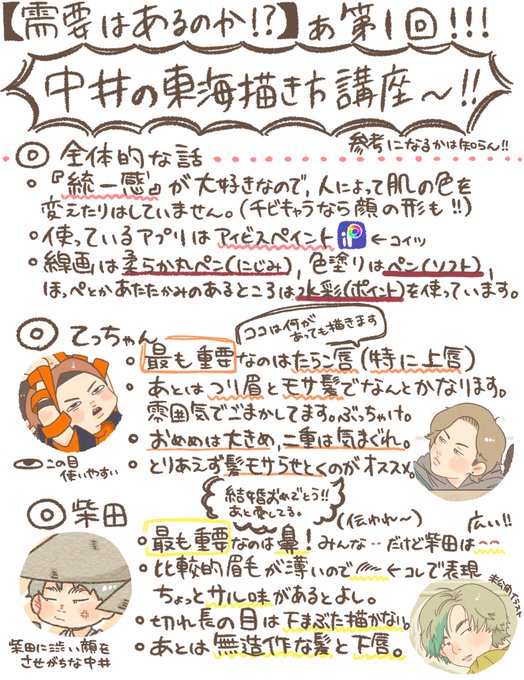 【需要はあるのか!?】ぁ第1回!!!
中井の東海描き方講座〜!!
参考になるかは知らん!!
◎全体的な話
・『統一感』が大好きなので、人によって肌の色を
変えたりはしていません。(チビキャラなら顔の形も!!)
・使っているアプリはアイビスペイント iP ←コイツ
・線画は柔らか丸ペン(にじみ)、色塗りはペン(ソフト)、
ほっぺとかあたたかみのあるところは水彩(ポイント)を使っています。
◎てっちゃん
ココは何が
あっても描きます
・最も重要なのはたらこ唇(特に上唇)
・あとはつり眉とモサ髪でなんとかなります。
雰囲気でごまかしてます。ぶっちゃけ。
・おめめは大きめ、二重は気まぐれ。
この目
使いやすい
・とりあえず髪モサらせとくのがオススメ。
結婚おめでとう!!
あと愛してる。
◎柴田
(伝われ〜)
広い!!
・最も重要なのは鼻!みんな‥だけど柴田は
・比較的眉毛が薄いので ←コレで表現
ちょっとサル味があるとよし。
・切れ長の目は下まぶた描かない。
・あとは無造作な髪と下唇。
柴田に渋い顔を
させがちな中井